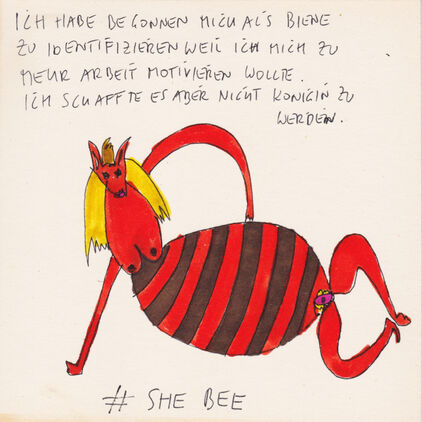 ICH HABE BEGONNEN MICH ALS BIENE
ZU IDENTIFIZIEREN WEIL ICH MICH ZU
MEHR ARBEIT MOTIVIEREN WOLLTE.
ICH SCHAFFTE ES ABER NICHT KÖNIGIN ZU
WERDEN.
# SHE BEE